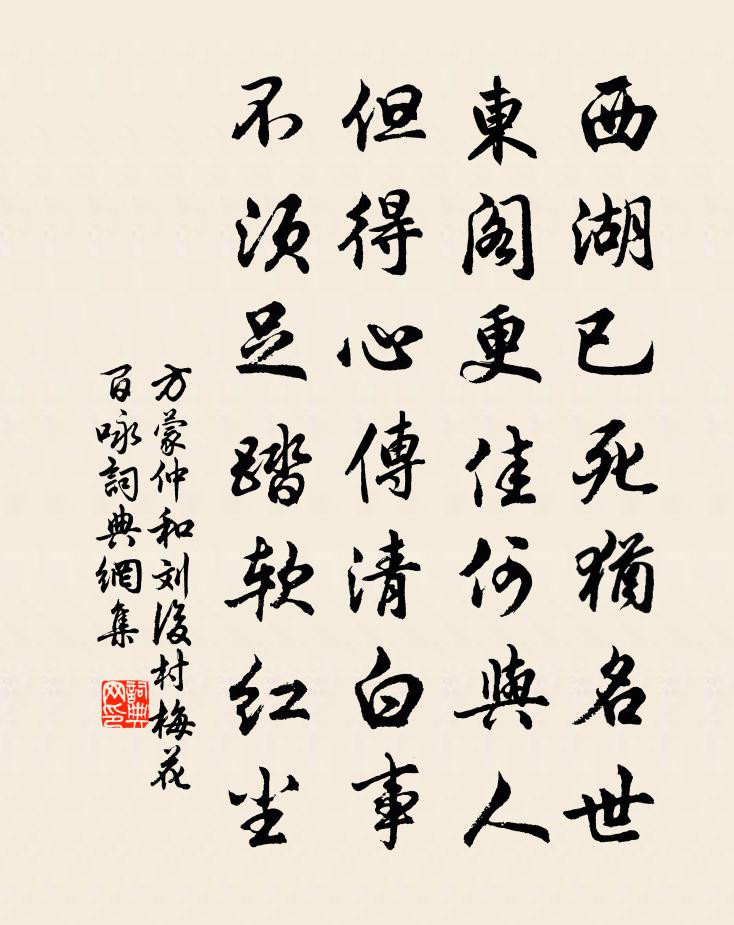 西湖已死猶名世
東阁更佳何與人
但得心傳清白事
不須足踏软红尘
方蒙仲和刘後村梅花
百咏詞典網集
詞典
网印